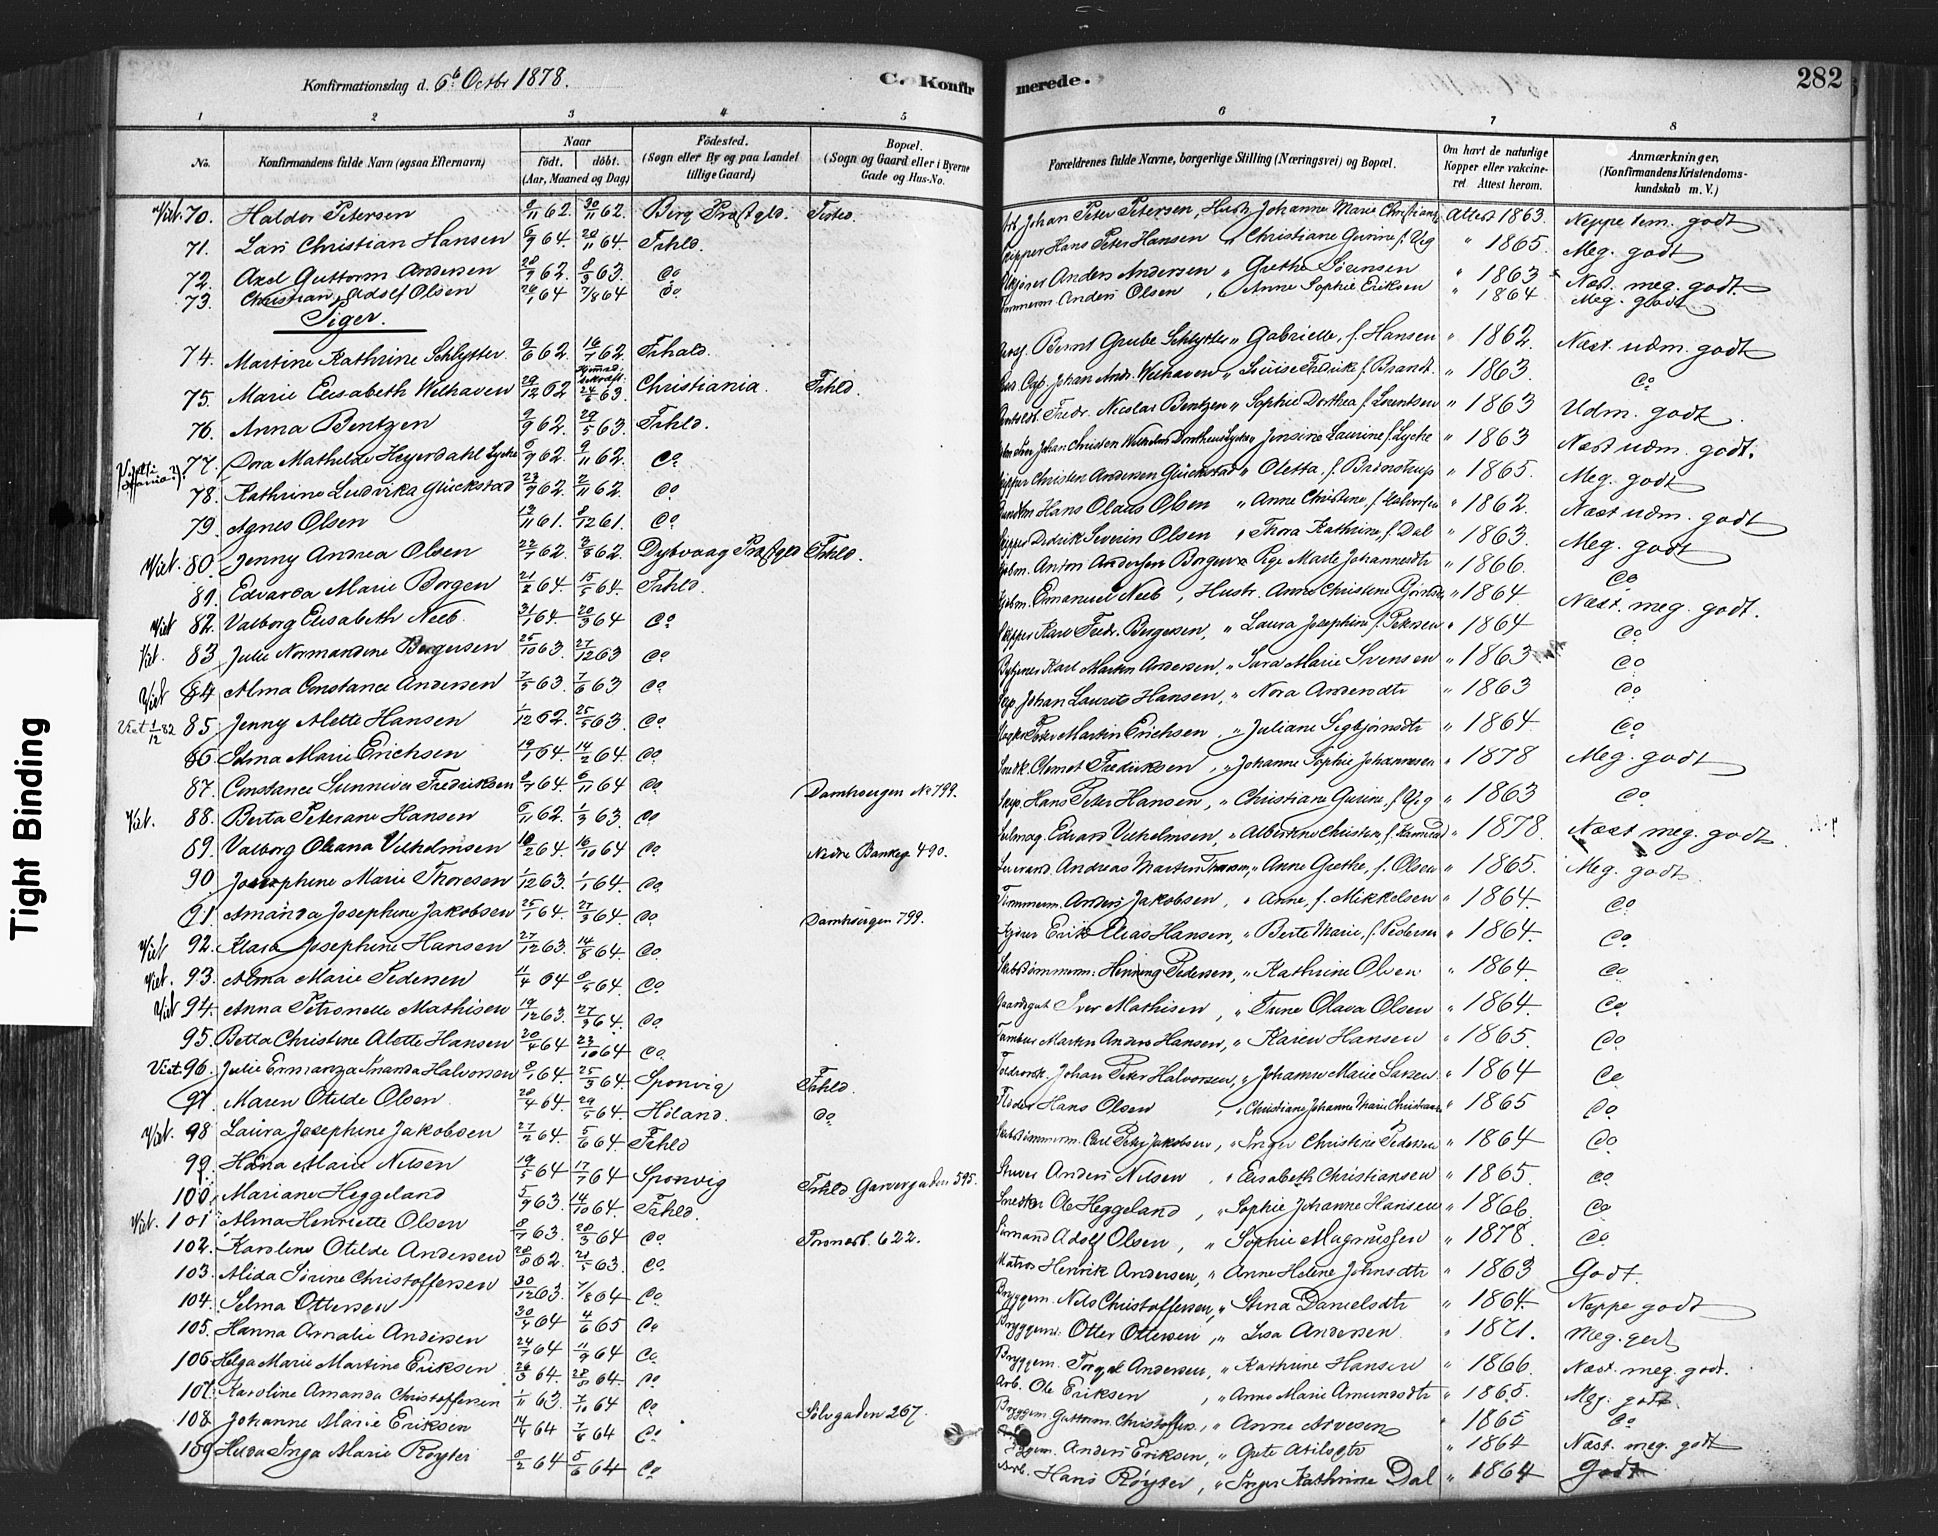 Konfirmationsdag d. 6te Octbr 1878.
C. Konfirmerede.
282
1 2 3 4 5 6 7 8
No. Konfirmandens fulde Navn (ogsaa Efternavn) Naar født. døbt. (Aar, Maaned og Dag) Födested. (Sogn eller By og paa Landet tillige Gaard) Bopæl. (Sogn og Gaard eller i Byerne Gade og Hus-No. Forældrenes fulde Navne, borgerlige Stilling (Næringsvei) og Bopæl. Om havt de naturlige Kopper eller vakcineret. Attest herom. Anmærkninger, (Konfirmandens Kristendomskundskab m. V.)
70. Haldor Petersen 9/11 62. 30/11 62. Berg Præstgld. Johan Peter Petersen, Hustr. Johanne Marie Attest 1863. Neppe tem. godt
71. Lars Christian Hansen 6/9 64. 20/11 64. Frhld. Hans Peter Hansen " Christiane Gurine " 1865. Meg. godt
72. Axel Guttorm Andersen 62. 63. Do Anders Andersen " Grethe Sörensen " 1863 Næst. meg. godt.
73. Christian Adolf Olsen 64 7/8 64 Do Anders Olsen " Anne Sophie Eriksen " 1864 Meg. godt
Piger.
74. Martine Kathrine Schlytter. 9/6 62. 16/7 62. Frhald. Bernt Grube Schlytter " Gabrielle, f. Hansen " 1862. Næst. udm. godt
75. Marie Elisabeth Welhaven 29/12 62 24/6 63. Christiania. Frhld. Johan Andr. Welhaven " Louise Fredrike f. Brandt. " 1863. Do
76. Anna Bentzen 9/9 62. 29/5 63. Frhld. Fredr. Nicolai Bentzen " Sophie Dorthea f. Lorentsen " 1863 Udm. godt
77. Dora Mathilde Heyerdahl Lycke 6/9 62. 9/11 62. Do Johan Christen Wilhelm Lycke " Jensine Laurine f. Lycke " 1863 Næst udm. godt.
78. Kathrine Ludvika Glückstad 23/9 62. 2/11 62. Do Christen Andersen Glückstad " Oletta, f. Brönstrup " 1865. Meg. godt
79. Agnes Olsen 19/11 61. 8/12 61. Do Hans Olaus Olsen " Anne Christine, f. Halvorsen " 1862. Næst udm. godt
Viet. 80. Jenny Andrea Olsen 22/7 62. 3/8 62. Dybvaag Præstgld Frhld. Didrik Severin Olsen " Thora Kathrine f. Dal " 1863. Meg. godt
81. Edvarda Marie Borgen 21/2 64. 15/5 64. Frhld. Anton Andersen Borgen Pige Marte Johannesdtr " 1866. Do
Viet 82. Valborg Elisabeth Neeb. 31/1 64. 20/3 64 Do Emanuel Neeb, Hustr. Anne Christine " 1864 Næst. meg. godt.
Viet. 83 Julie Normandine Borgersen 25/10 63. 27/12 63 Do Karl Fredr. Borgersen, " Laura Josephine f. Petersen " 1864 Do
Viet 84 Alma Constance Andersen 7/5 63. 7/6 63 Do Karl Martin Andersen, " Sara Marie Svensen " 1863 Do
Viet 1/12 82 85. Jenny Alette Hansen 1/12 62. 25/5 63. Do Johan Laurits Hansen, " Nora Andersdtr " 1863 Do
86 Selma Marie Erichsen 19/1 64. 14/2 64. Do Peter Martin Erichsen. " Juliane Sigbjörnsdtr " 1864 Do
87. Constance Sunniva Fredriksen 64. 6/11 64 Do Damhaugen No 799. Clemet Fredriksen, " Johanne Sophie Johannesen " 1878 Meg. godt
Viet. 88. Berta Peterane Hansen 6/11 62. 1/3 63. Do Hans Peter Hansen, " Christiane Gurine " 1863 Do
89. Valborg Oliana Vilhelmsen 18/2 64. 16/10 64 Do Nedre Bankeg. 490. Edvard Vilhelmsen, " Albertine Christine " 1878. Næst meg. godt
90 Josephine Marie Thoresen 1/12 63. 1/1 64. Do Andreas Martin Thoresen, " Anne Grethe, f. Olsen " 1865 Meg. godt
91. Amanda Josephine Jakobsen 25/1 64. 27/3 64. Do Damhaugen 799. Tömmerm. Anders Jakobsen, " Anne, f. Mikkelsen " 1864 Do
Viet 92. Klara Josephine Hansen 27/12 63. 14/8 64. Do Erik Elias Hansen, " Berte Marie, f. Pedersen " 1864. Do
Viet. 93. Alma Marie Pedersen 11/4 64 64. Do Henning Pedersen, " Kathrine Olsen " 1864 Do
Viet 94. Anna Petronelle Mathisen 19/12 63. 27/3 64. Do Gaardsgut Iver Mathisen, " Trine Olava Olsen " 1864. Do
95. Betta Christine Alette Hansen 20/4 64 23/10 64 Do Martin Anders Hansen, " Karen Hansen " 1865. Do
Viet 96. Julie Ermanza Amanda Halvorsen 8/1 64. 25/3 64. Sponvig Frhld. Johan Peter Halvorsen, " Johanne Marie Larsen " 1864 Do
97. Maren Otilde Olsen. 28/4 64. 29/5 64. Höland. Do Hans Olsen " Christiane Johanne Marie " 1865 Do
Viet. 98 Laura Josephine Jakobsen 27/2 64. 5/6 64 Frhld Carl Peter Jakobsen, " Inger Christine Pedersen " 1864 Do
99. Hana Marie Nilsen 19/5 64 17/7 64 Sponvig Frhld Garvergaden 595. Anders Nilsen " Elisabeth Christiansen " 1865. Do
100. Mariane Heggeland 5/9 63. 14/10 64. Frhld. Ole Heggeland, " Sophie Johanne Hansen " 1866 Do
Viet. 101. Alma Henriette Olsen 8/7 63. 20/3 64 Do 622. Adolf Olsen, " Sophie Magnussen " 1878 Do
102. Karoline Otilde Andersen 28/8 62. 21/5 63. Do Matros Henrik Andersen, " Anne Helene Johnsdtr " 1863 Godt
103. Alida Sörine Christoffersen 30/12 63. 7/8 64 Do Bryggem. Nils Christoffersen, " Stina Danielsdtr " 1864. Neppe godt
104. Selma Ottersen 30/4 64 4/6 65 Do Bryggem. Otter Ottersen, " Lisa Andersen " 1871. Meg. godt
105. Hanna Amalie Andersen 24/7 64 11/9 64 Do Bryggem. Andersen, " Kathrine Hansen " 1866 Næst. meg. godt.
106 Helga Marie Martine Eriksen 26/3 64. 28/8 64. Do Arb. Ole Eriksen, " Anne Marie Amundsdtr " 1865. Meg. godt
107. Karoline Amanda Christoffersen 1/11 63. 7/10 64 Do Sölvgaden 267. Bryggem Guttorm Christoffers., " Anne Arvesen " 1865 Do
108. Johanne Marie Eriksen 14/4 64 7/8 64 Do Anders Eriksen, " Grete " 1864 Næst. meg. godt
109 Hulda Inga Marie Röyter 8/2 64 5/6 64 Do Arb. Hans Röyter, " Inger Kathrine Dal " 1864 Godt
Tight Binding